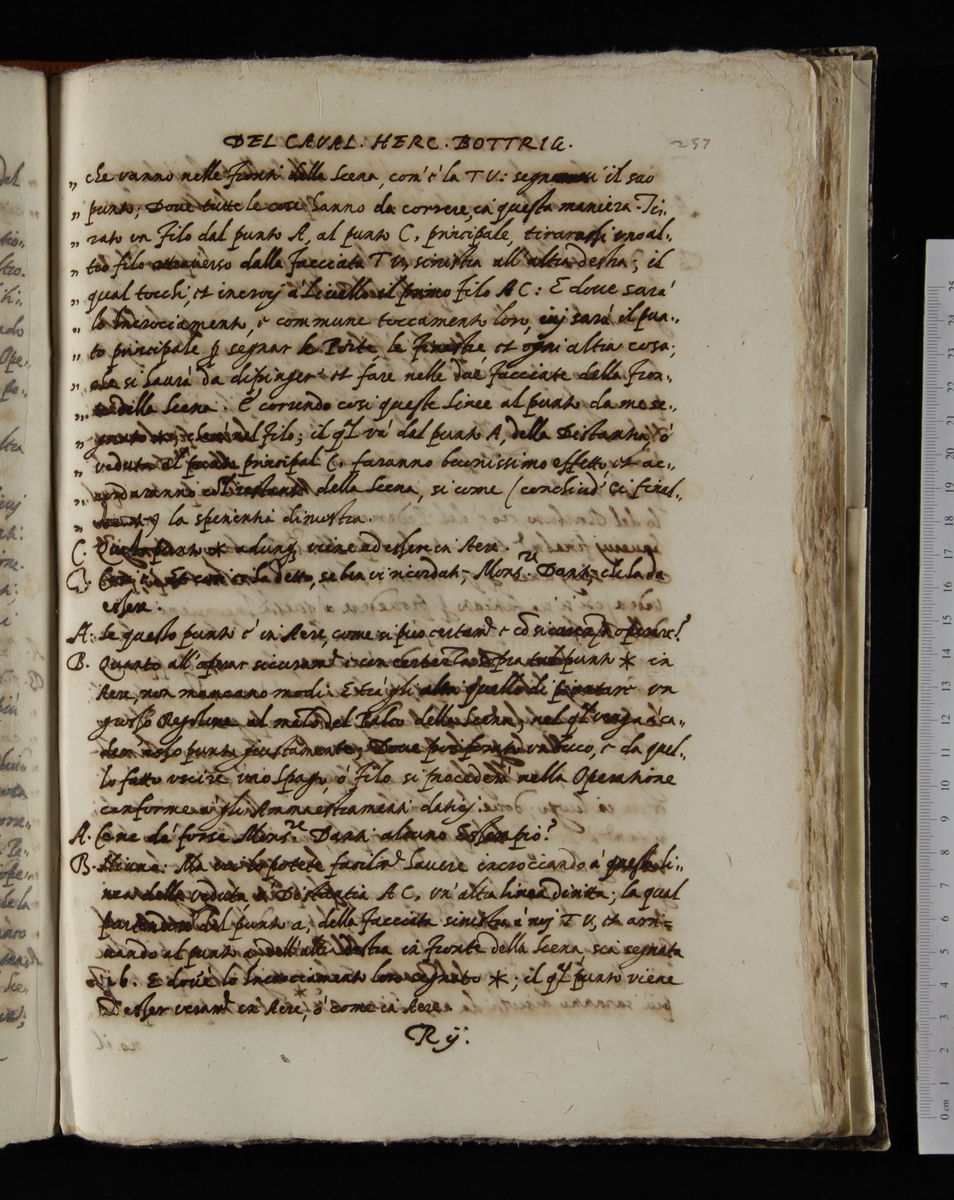 DEL CAVAL: HERC. BOTTRIG. 257
„ che vanno nelle fronti della Scena, com' è la TV: segnarassi il suo
„ punto; Dove tutte le cose hanno da correre, in questa maniera. Ti-
„ rato un Filo dal punto A, al punto C, principale, tirarassi uno al-
„ tro filo attraverso dalla facciata TV, sinistra all' altra destra; il
„ qual tocchi, et incroci à Livello il primo Filo AC: E dove sarà
„ lo Incrociamento, e commune toccamento loro, ivj sarà il pun-
„ to principale p segnar le Porte, le finestre et ogni altra cosa;
„ che si haurà da dipinger' et fare nelle due facciate della fron-
„ te della Scena. E correndo cosi queste Linee al punto da me se-
„ gnato *, nel Filo; il ql và dal punto A, della Distantia, ò
„ veduta al principal C, faranno benissimo effetto et ac-
„ della Scena, si come (conchiud' ei finel-
„ la sperientia dimostra.
C. Questo punto * adunq viene ad essere in Aere.
B. come hà detto, se ben vi ricordate, Monsre. Danti che ha da
essere.
A: Se questo punto è in Aere, come si puo certamte e co sicurezza operare?
B. Quanto all' operar sicuramte e con certezza sopra tal punto * in
Aere, non mancano modi. E trà gli altri quello di piantare un
grosso Regolone al mezo del Palco della Scena, nel ql venga à ca-
der' esso punto giustamente; Dove poi forato un buco, e da quel-
lo fatto uscire uno Spago, ò filo si procederà nella Operatione
conforme à gli Ammaestramenti datici.
A. Ce ne dà forse Monsre. Danti alcuno Essempio?
B. Niuno. Ma lo potete facilmte havere incroccando à questa li-
nea della veduta ò Distantia AC, un' altra linea dirita; la qual
partendosi dal punto a, della facciata sinistra è nej TV, et arri-
vando al punto dell' altra destra in fronte della Scena sia segnata
di b. E dov' è lo Incrociamento loro segnato *; il ql punto viene
D'esser veramte in Aere, ò come in Aere.
R ij: